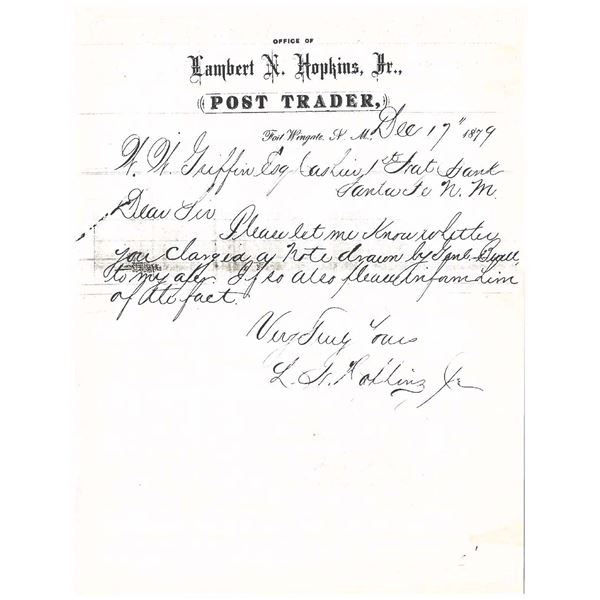 OFFICE OF
Lambert N. Hopkins, Jr.,
POST TRADER,
Fort Wingate, N. M. Dec 17" 1879
W. W. Griffin Esq Cashier 1st Nat Bank
Santa Fe N. M.
Dear Sir
Please let me know whether
you charged a Note drawn by
to my a/c. If so also please inform him
of the fact.
Very Truly Yours
L. N. Hopkins Jr